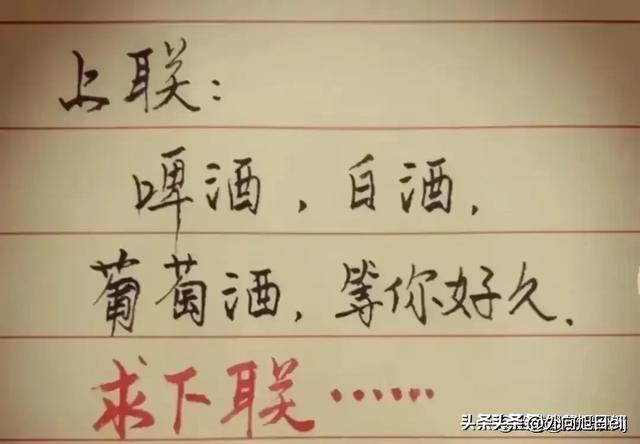 上联:
啤酒,白酒,
葡萄酒,等你好久.
求下联……